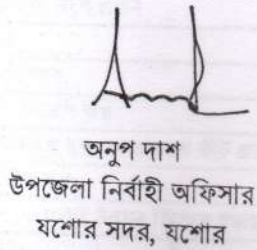 অনুপ দাশ
উপজেলা নির্বাহী অফিসার
যশোর সদর, যশোর